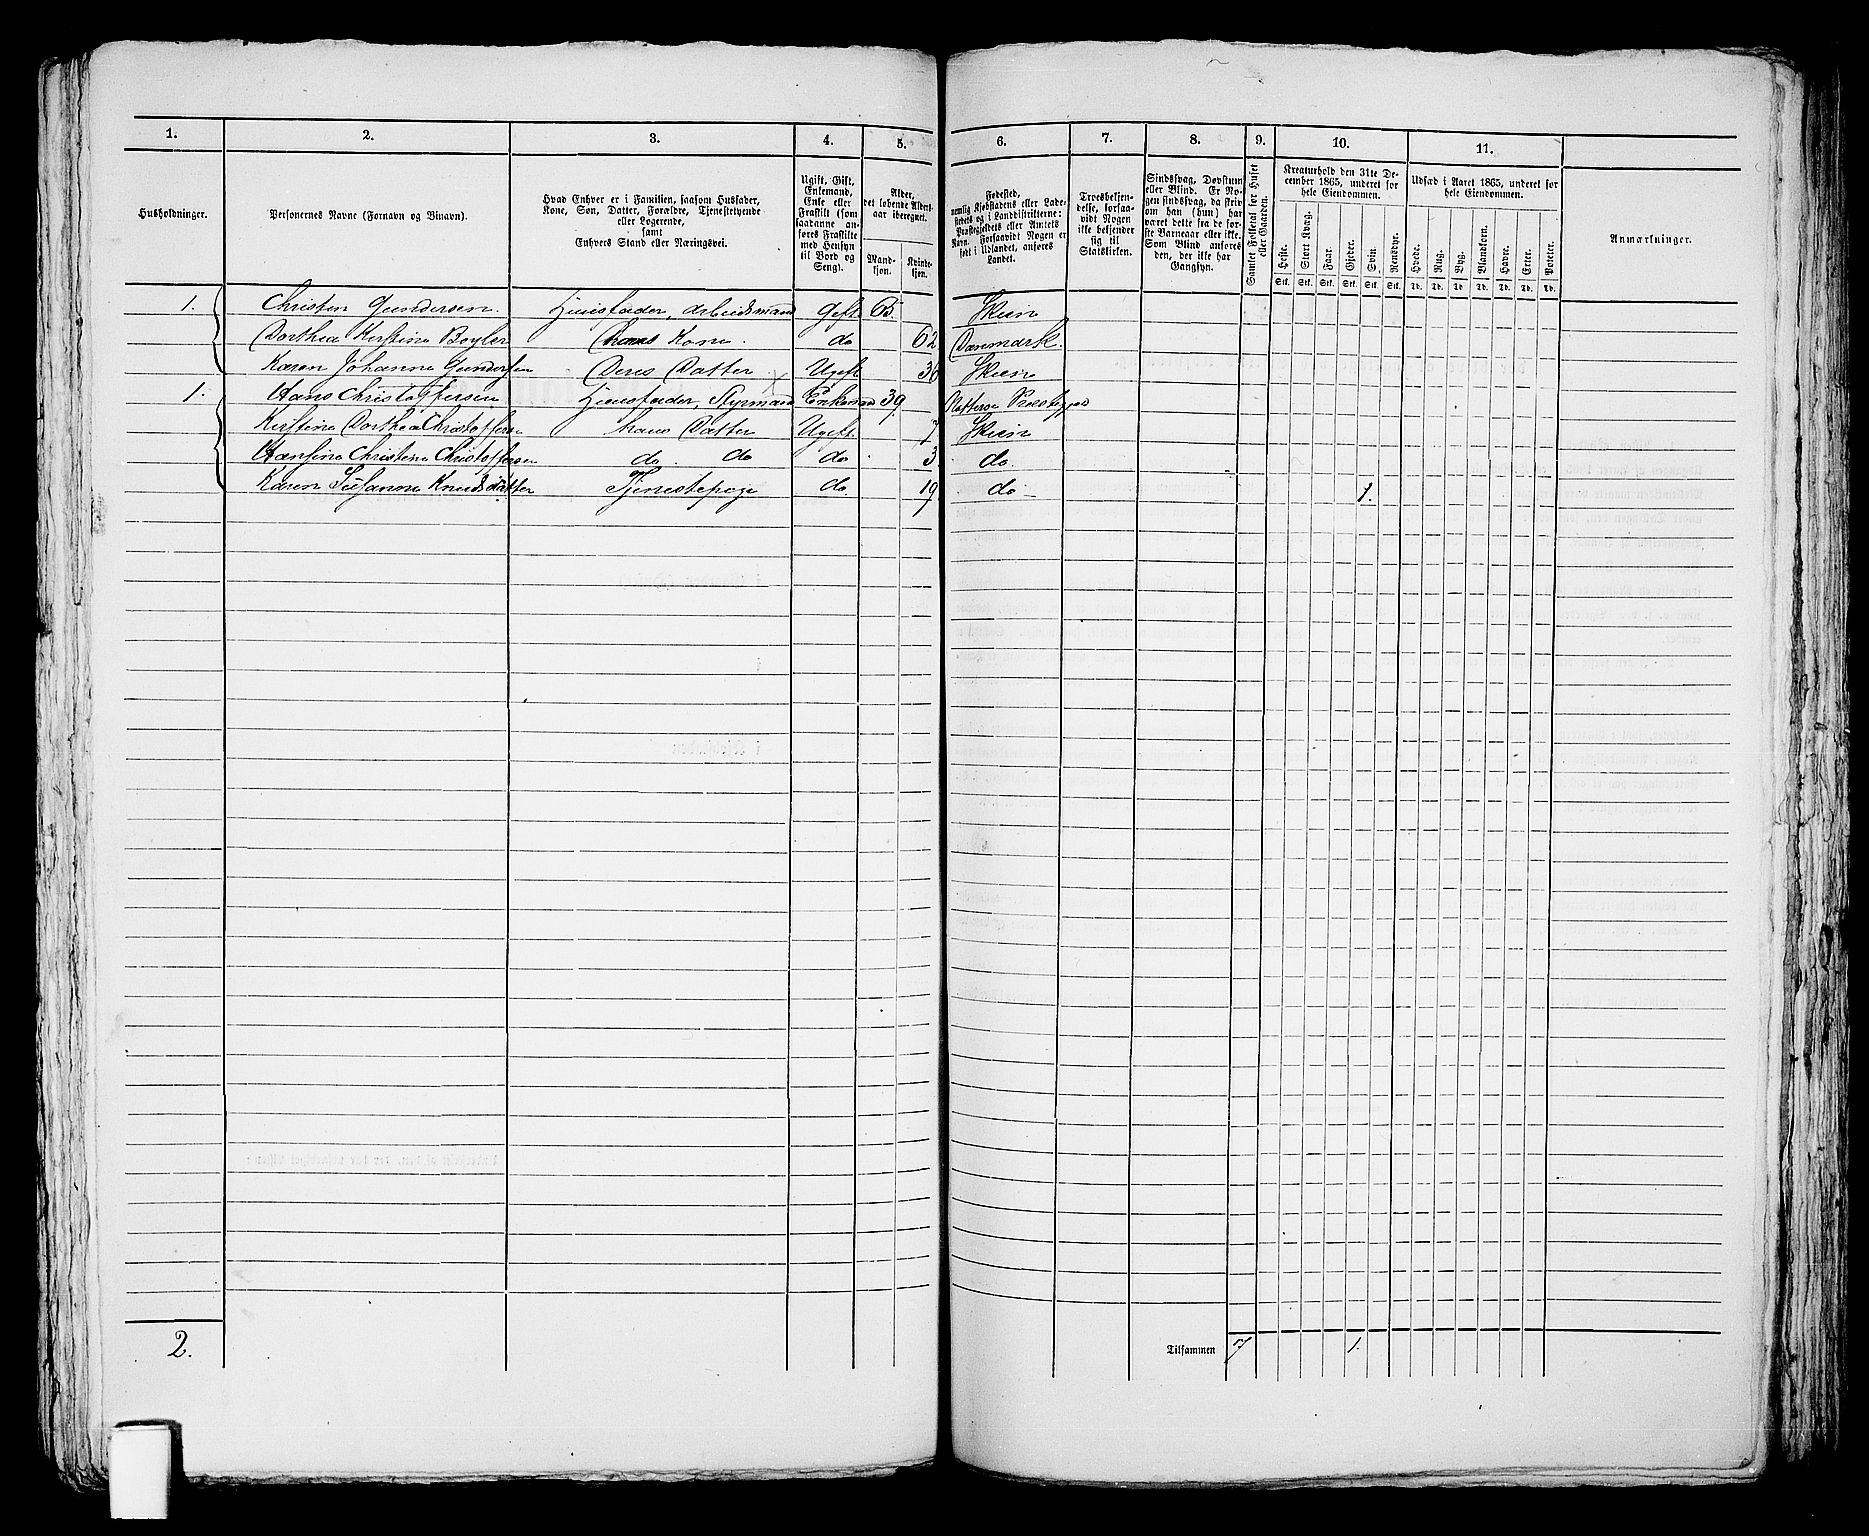 1. 2. 3. 4. 5. 6. 7. 8. 9. 10. 11.
Husholdninger.
Personernes Navne (Fornavn og Binavn).
Hvad Enhver er i Familien, saasom Husfader,
Kone, Søn, Datter, Forældre, Tjenestetyende
eller Logerende,
samt
Enhvers Stand eller Næringsvei.
Ugift, Gift,
Enkemand,
Enke eller
Fraskilt (som
saadanne an-
føres Fraskilte
med Hensyn
til Bord og
Seng).
Alder,
det løbende Alders-
aar iberegnet.
Mand-
kjøn.
Kvinde-
kjøn.
Fødested,
nemlig Kjøbstadens eller Lade-
stedets og i Landdistrikterne:
Præstegjeldets eller Amtets
Navn. Forsaavidt Nogen er
født i Udlandet, anføres
Landet.
Troesbekjen-
delse, forsaa-
vidt Nogen
ikke bekjender
sig til
Statskirken.
Sindssvag, Døvstum
eller Blind. Er No-
gen sindssvag, da skriv
om han (hun) har
været dette fra de før-
ste Barneaar eller ikke.
Som Blind anføres
den, der ikke har
Gangsyn.
Samlet Folketal for Huset
eller Gaarden.
Kreaturhold den 31te De-
cember 1865, underet for
hele Eiendommen.
Heste. Stort Kvæg. Faar. Gjeder. Svin. Rensdyr.
Stk. Stk. Stk. Stk. Stk. Stk.
Udsæd i Aaret 1865, underet for
hele Eiendommen.
Hvede. Rug. Byg. Blandkorn. Havre. Erter. Poteter.
Td. Td. Td. Td. Td. Td. Td.
Anmærkninger.
1. Christen Gundersen. Huusfader, Arbeidsmand Gift 65. Skien
Dorthea Kirstine Beyler Hans Kone. do 62 Danmark.
Karen Johanne Gundersen Deres Datter. Ugift 36 Skien
1. Hans Christoffersen Huusfader, Styrmand Enkemand 39
Kirstine Dorthea Christoffersen hans Datter Ugift. 7 Skien
Hansine Christine Christoffersen do. do do 3. do.
Karen Susanne Knudsdatter Tjenestepige do. 19 do 1.
2.
Tilsammen 7 1.